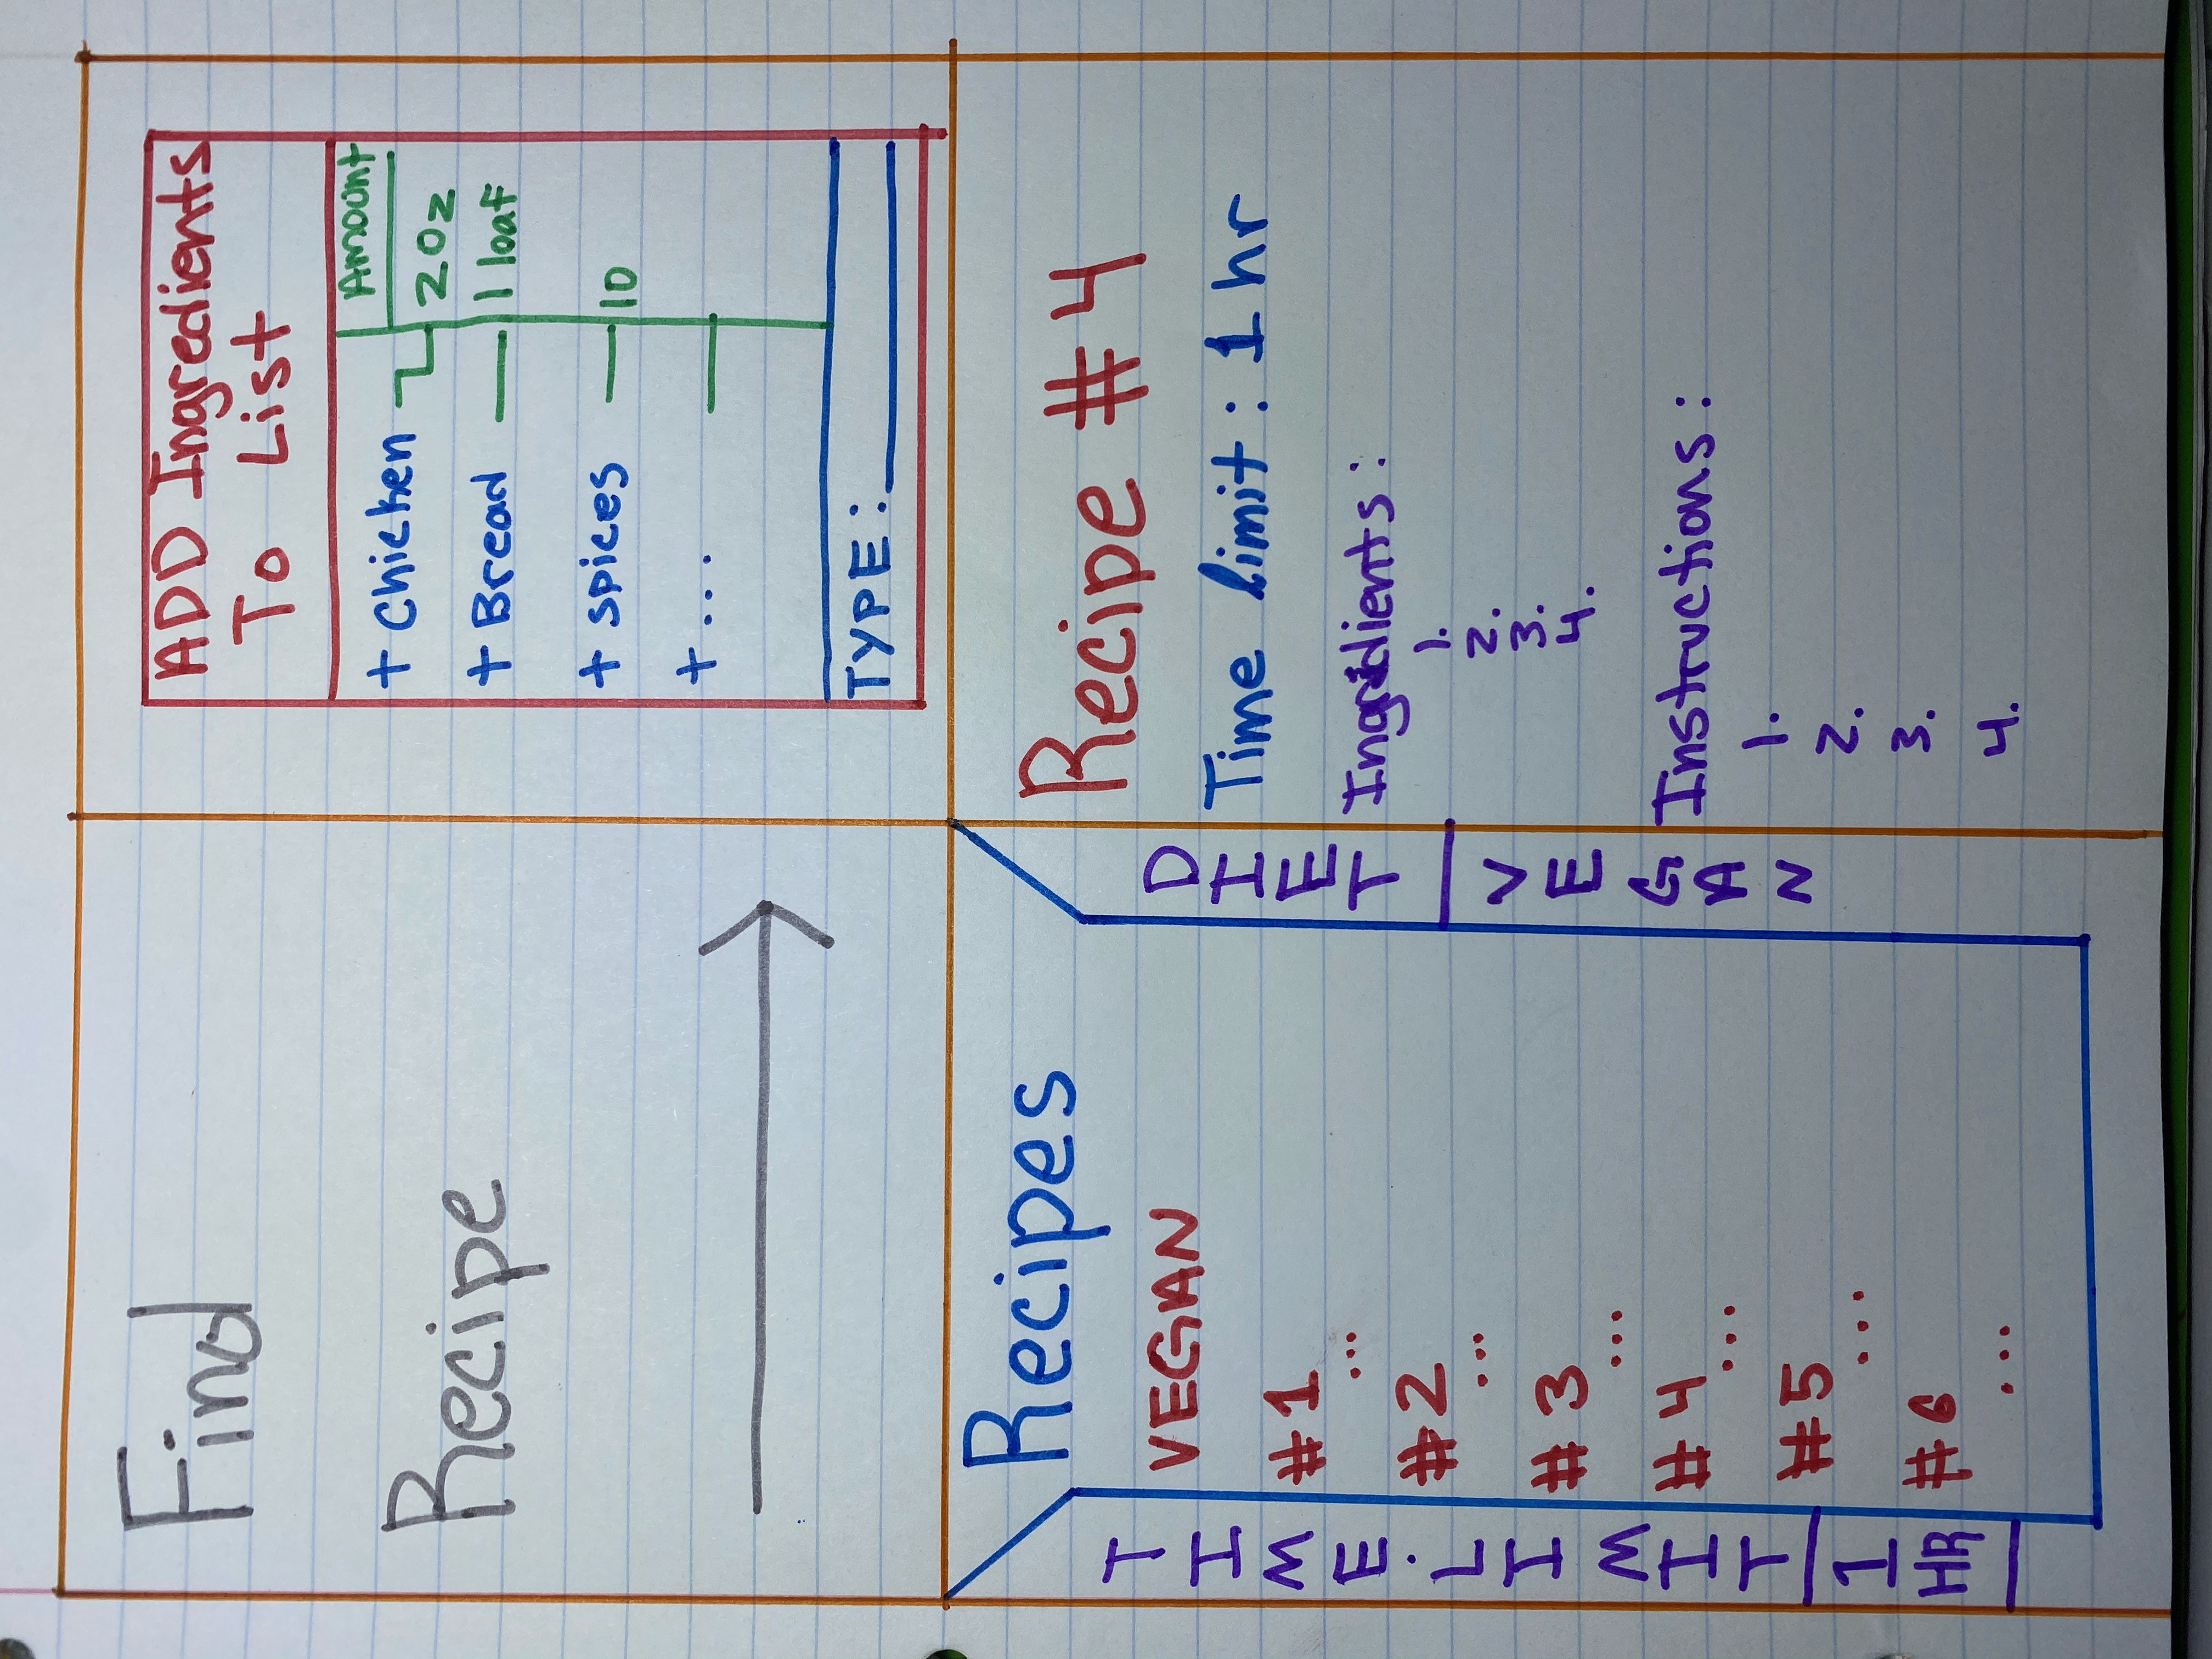 Find
Recipe
ADD Ingredients
To List
Amount
+ Chicken
2 Oz
+ Bread
1 loaf
+ spices
10
+ ...
TYPE:
Recipes
VEGAN
#1
...
#2
...
#3
...
#4
...
#5
...
#6
...
TIME.LIMIT
1
HR
DIET
VEGAN
Recipe #4
Time limit: 1 hr
Ingridients:
1.
2.
3.
4.
Instructions:
1.
2.
3.
4.